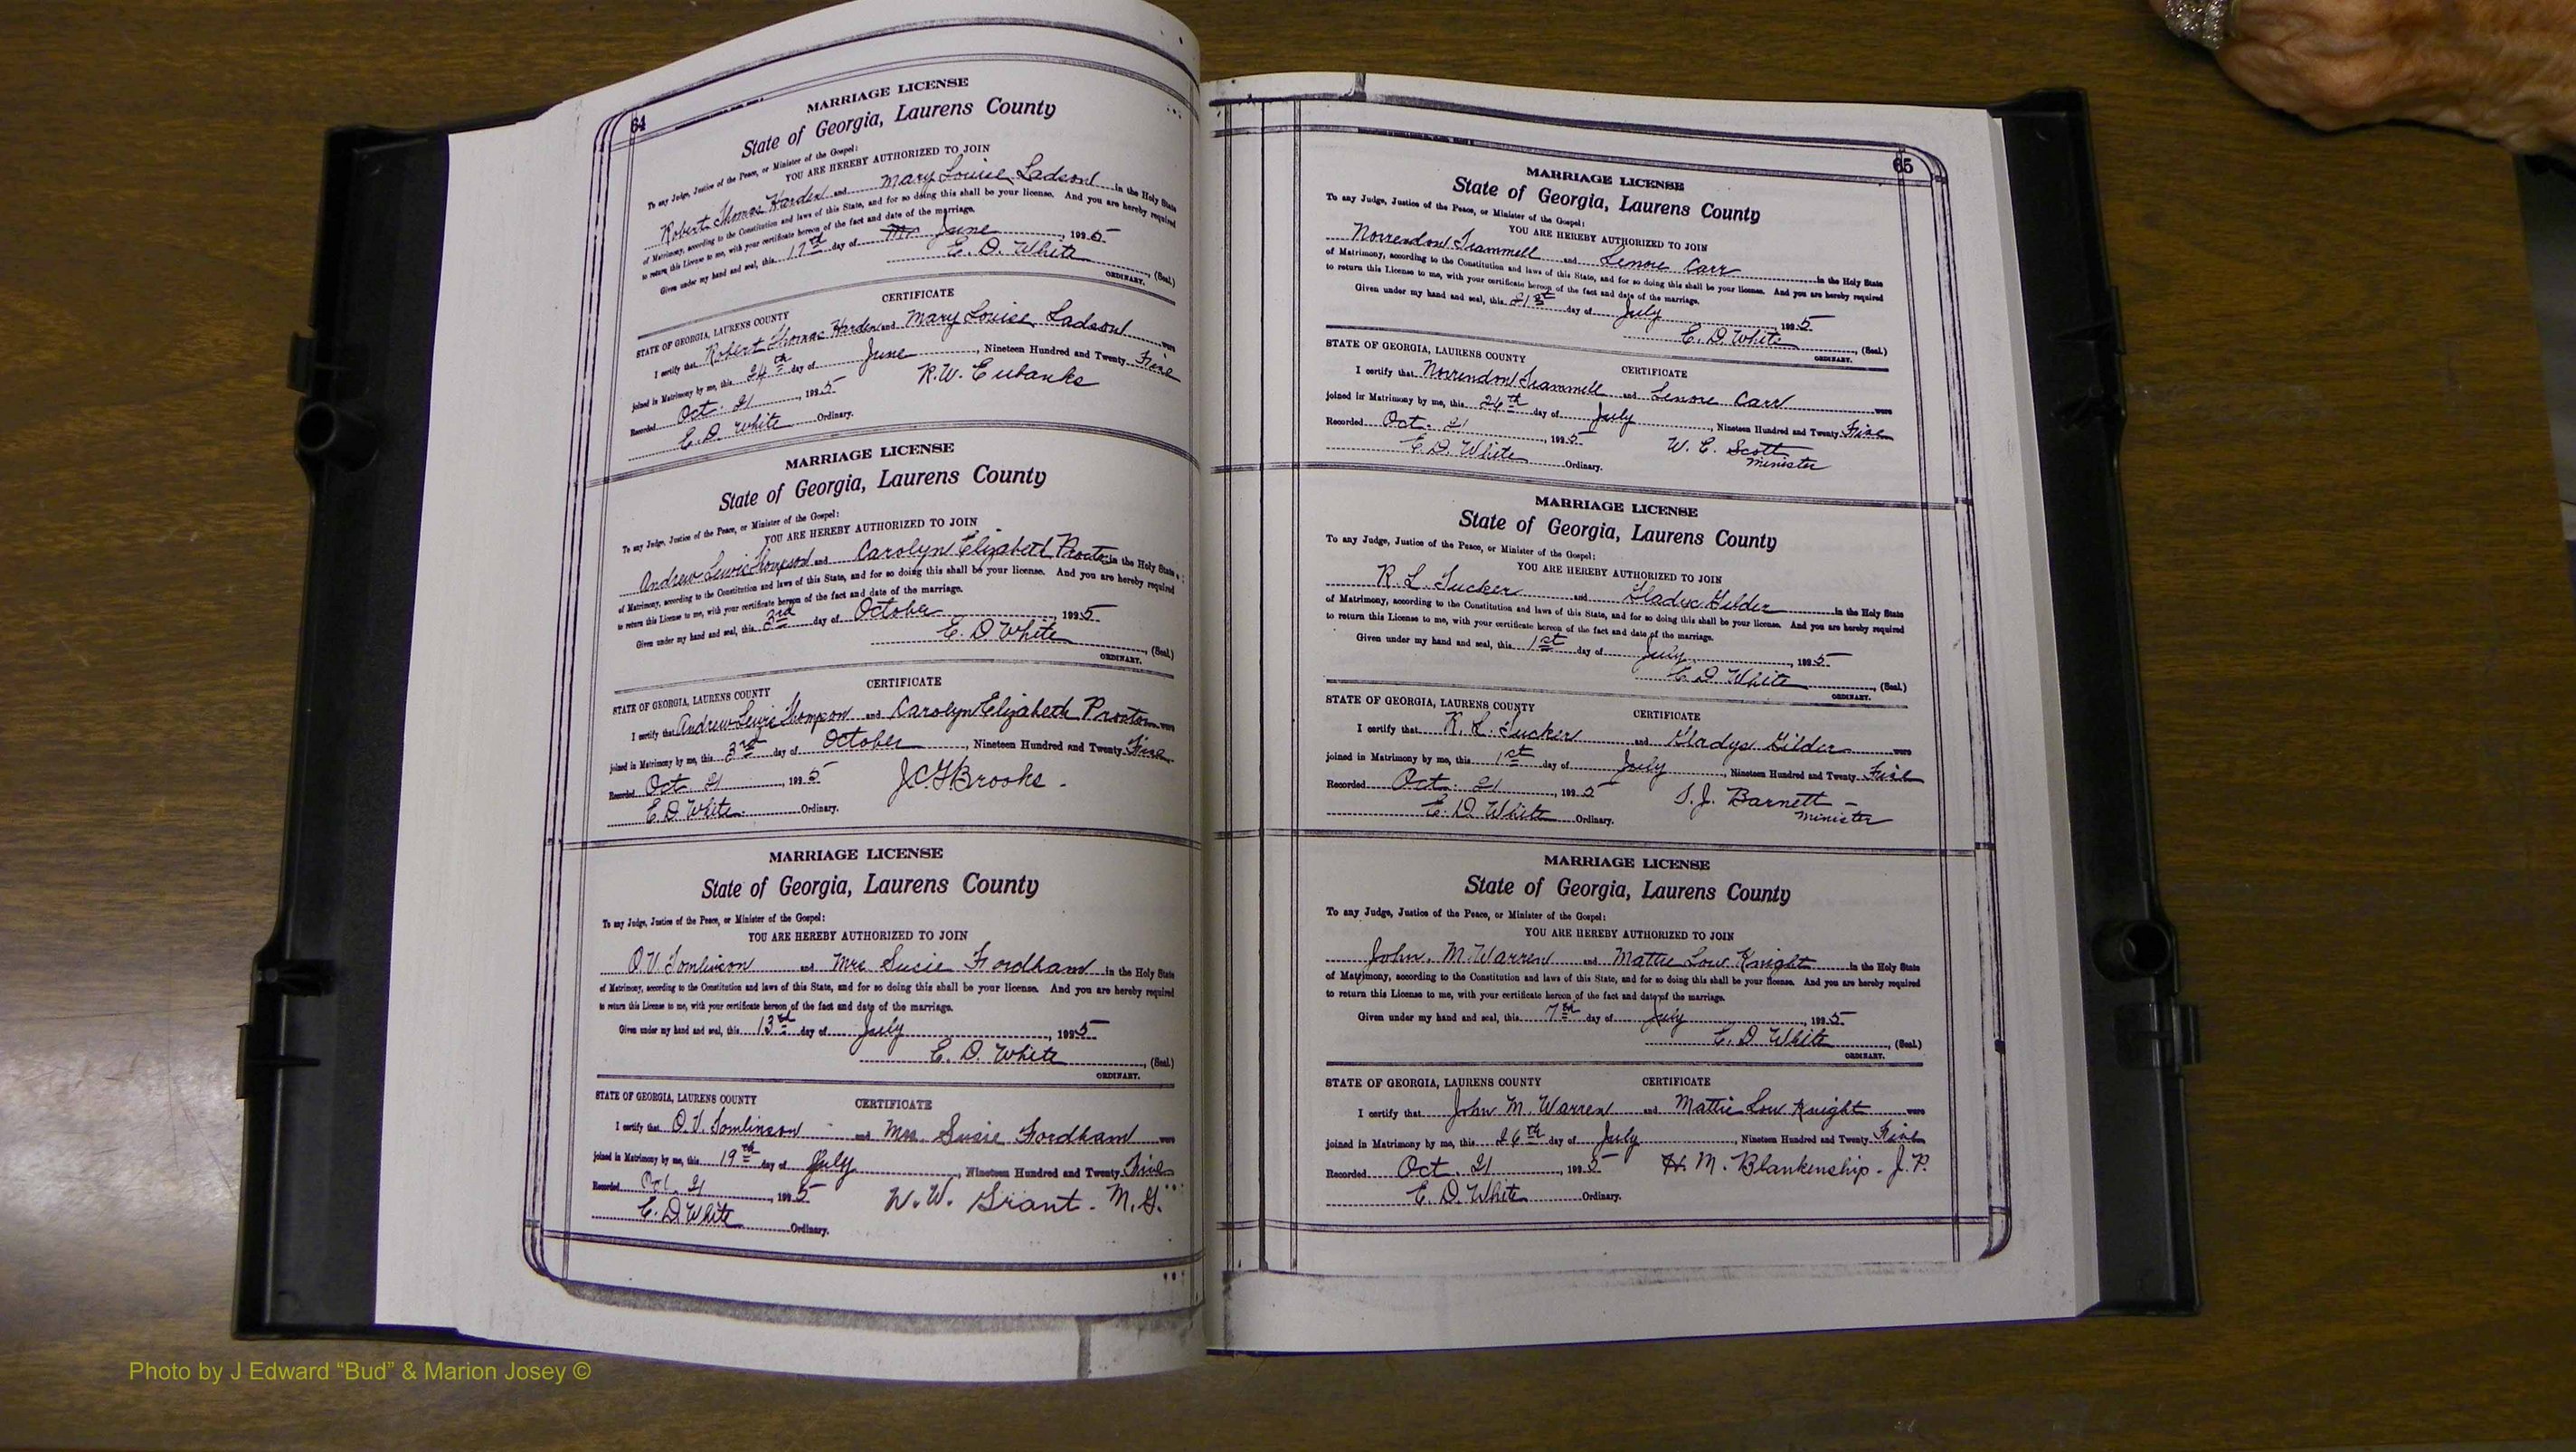 64
MARRIAGE LICENSE
State of Georgia, Laurens County
To any Judge, Justice of the Peace, or Minister of the Gospel:
YOU ARE HEREBY AUTHORIZED TO JOIN
Robert Thomas Harden and Mary Louise Ladson in the Holy State
of Matrimony, according to the Constitution and laws of this State, and for so doing this shall be your license. And you are hereby required
to return this License to me, with your certificate hereon of the fact and date of the marriage.
Given under my hand and seal, this 17th day of June, 1925
E. D. White, (Seal.)
ORDINARY.
CERTIFICATE
STATE OF GEORGIA, LAURENS COUNTY
I certify that Robert Thomas Harden and Mary Louise Ladson were
joined in Matrimony by me, this 24th day of June, Nineteen Hundred and Twenty Five
Recorded Oct. 21, 1925 R.W. Eubanks
E. D. White Ordinary.
MARRIAGE LICENSE
State of Georgia, Laurens County
To any Judge, Justice of the Peace, or Minister of the Gospel:
YOU ARE HEREBY AUTHORIZED TO JOIN
Andrew Lewis Thompson and Carolyn Elizabeth Proctor in the Holy State
of Matrimony, according to the Constitution and laws of this State, and for so doing this shall be your license. And you are hereby required
to return this License to me, with your certificate hereon of the fact and date of the marriage.
Given under my hand and seal, this 3rd day of October, 1925
E. D White, (Seal.)
ORDINARY.
CERTIFICATE
STATE OF GEORGIA, LAURENS COUNTY
I certify that Andrew Lewis Thompson and Carolyn Elizabeth Proctor were
joined in Matrimony by me, this 3rd day of October, Nineteen Hundred and Twenty Five
Recorded Oct 21, 1925 Brooks.
E. D White Ordinary.
MARRIAGE LICENSE
State of Georgia, Laurens County
To any Judge, Justice of the Peace, or Minister of the Gospel:
YOU ARE HEREBY AUTHORIZED TO JOIN
O.V. Tomlinson and Mrs Susie Fordham in the Holy State
of Matrimony, according to the Constitution and laws of this State, and for so doing this shall be your license. And you are hereby required
to return this License to me, with your certificate hereon of the fact and date of the marriage.
Given under my hand and seal, this 13th day of July, 1925
E. D. White, (Seal.)
ORDINARY.
STATE OF GEORGIA, LAURENS COUNTY CERTIFICATE
I certify that O.V. Tomlinson and Mrs. Susie Fordham were
joined in Matrimony by me, this 19th day of July, Nineteen Hundred and Twenty Five
Recorded Oct. 21, 1925 W. W. Grant. M. G.
E. D. White Ordinary.
65
MARRIAGE LICENSE
State of Georgia, Laurens County
To any Judge, Justice of the Peace, or Minister of the Gospel:
YOU ARE HEREBY AUTHORIZED TO JOIN
Norrendon Trammell and Lenore Carr in the Holy State
of Matrimony, according to the Constitution and laws of this State, and for so doing this shall be your license. And you are hereby required
to return this License to me, with your certificate hereon of the fact and date of the marriage.
Given under my hand and seal, this 21st day of July, 1925
E. D. White, (Seal.)
ORDINARY.
STATE OF GEORGIA, LAURENS COUNTY CERTIFICATE
I certify that Norrendon Trammell and Lenore Carr were
joined in Matrimony by me, this 26th day of July, Nineteen Hundred and Twenty Five
Recorded Oct. 21, 1925 W. C. Scott
E. D. White Ordinary. Minister
MARRIAGE LICENSE
State of Georgia, Laurens County
To any Judge, Justice of the Peace, or Minister of the Gospel:
YOU ARE HEREBY AUTHORIZED TO JOIN
R. L. Tucker and Gladys Gilder in the Holy State
of Matrimony, according to the Constitution and laws of this State, and for so doing this shall be your license. And you are hereby required
to return this License to me, with your certificate hereon of the fact and date of the marriage.
Given under my hand and seal, this 1st day of July, 1925
E. D White, (Seal.)
ORDINARY.
STATE OF GEORGIA, LAURENS COUNTY CERTIFICATE
I certify that R. L. Tucker and Gladys Gilder were
joined in Matrimony by me, this 1st day of July, Nineteen Hundred and Twenty Five
Recorded Oct. 21, 1925 S. J. Barnett -
E. D. White Ordinary. Minister
MARRIAGE LICENSE
State of Georgia, Laurens County
To any Judge, Justice of the Peace, or Minister of the Gospel:
YOU ARE HEREBY AUTHORIZED TO JOIN
John. M. Warren and Mattie Low Knight in the Holy State
of Matrimony, according to the Constitution and laws of this State, and for so doing this shall be your license. And you are hereby required
to return this License to me, with your certificate hereon of the fact and date of the marriage.
Given under my hand and seal, this 7th day of July, 1925
E. D White, (Seal.)
ORDINARY.
STATE OF GEORGIA, LAURENS COUNTY CERTIFICATE
I certify that John M. Warren and Mattie Low Knight were
joined in Matrimony by me, this 26th day of July, Nineteen Hundred and Twenty Five
Recorded Oct. 21, 1925 H. M. Blankenship. J. P.
E. D. White Ordinary.
Photo by J Edward “Bud” & Marion Josey ©